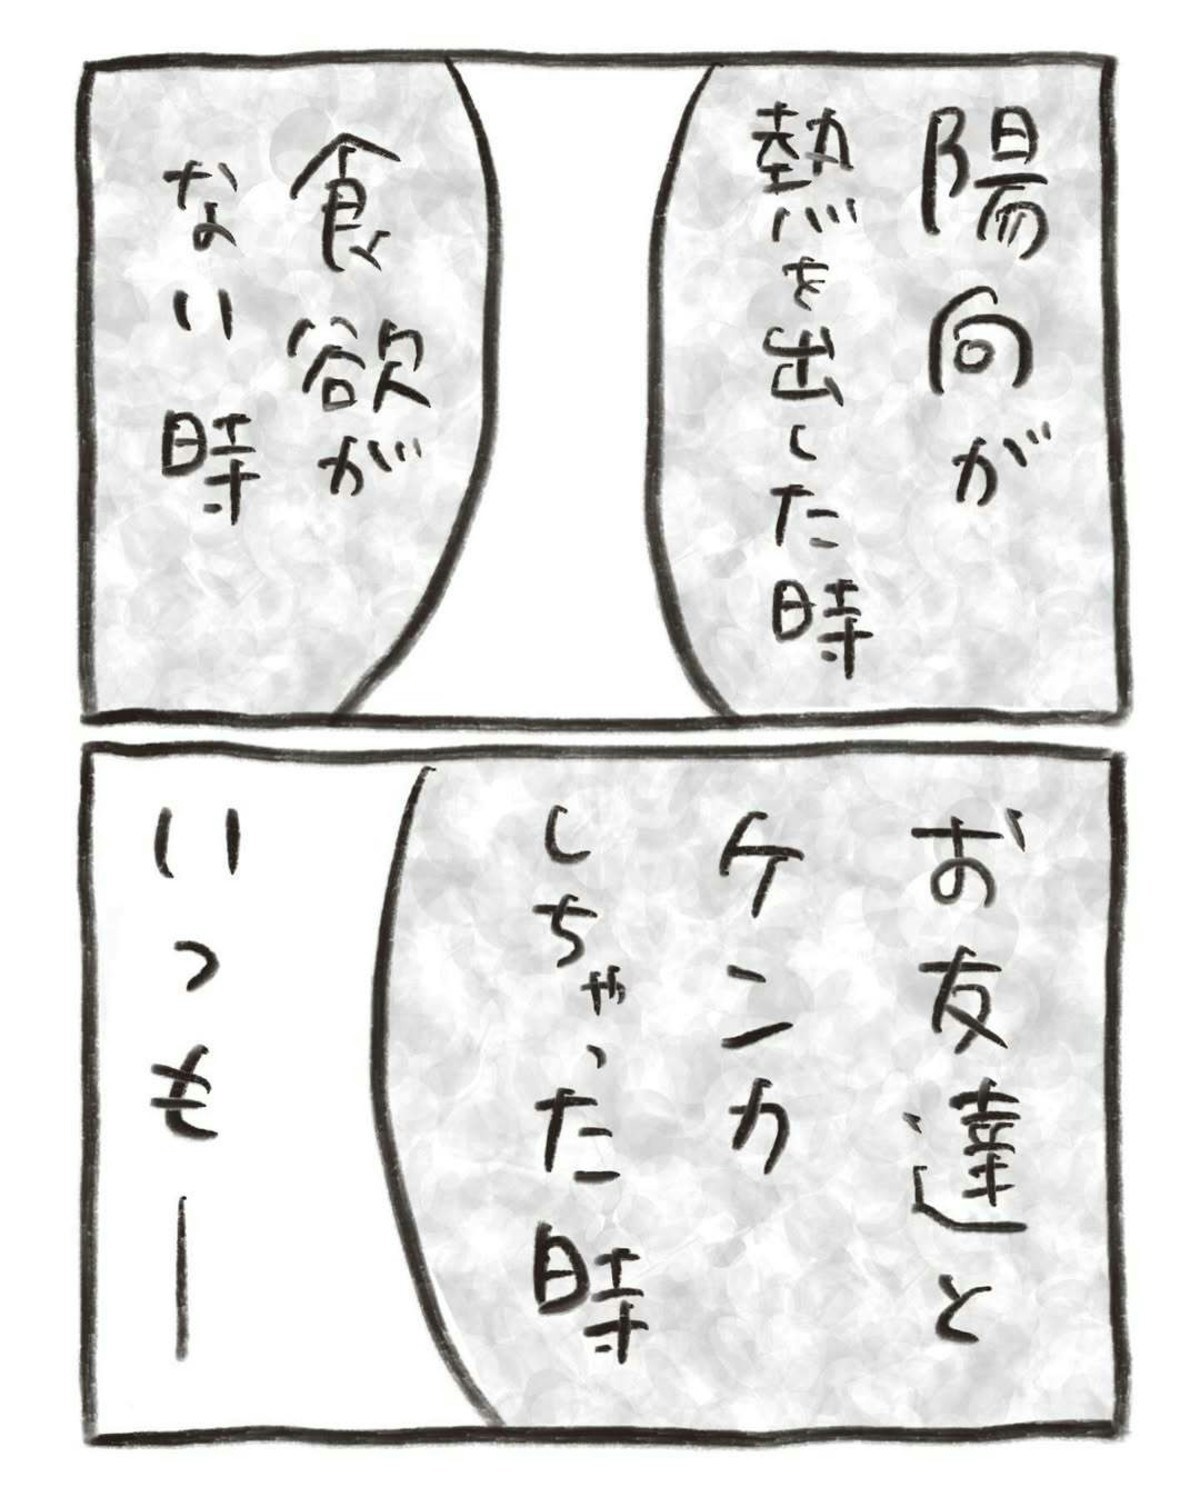 陽向が
熱を出した時
食欲が
ない時
お友達と
ケンカ
しちゃった時
いつもー